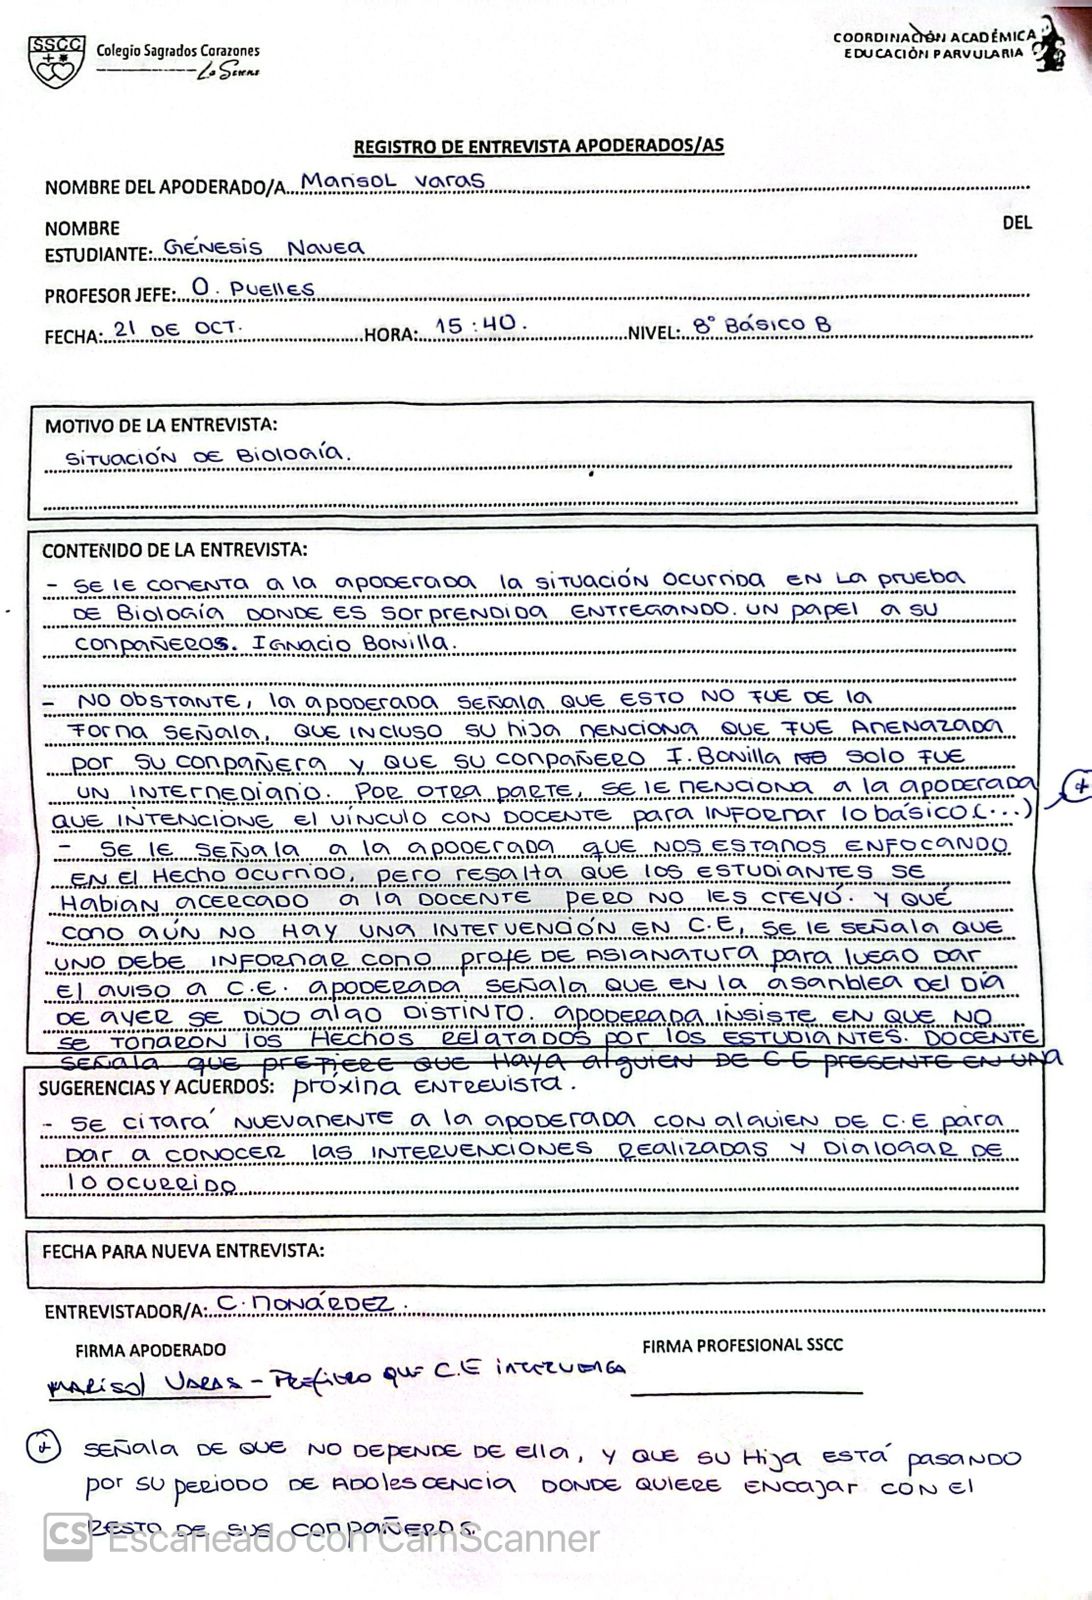 SSCC
Colegio Sagrados Corazones
La Serena
COORDINACIÓN ACADÉMICA
EDUCACIÓN PARVULARIA
REGISTRO DE ENTREVISTA APODERADOS/AS
NOMBRE DEL APODERADO/A Marisol Varas
NOMBRE DEL
ESTUDIANTE: GÉNESIS NAVEA
PROFESOR JEFE: O. PUELLES
FECHA: 21 DE OCT. HORA: 15:40. NIVEL: 8° BÁSICO B
MOTIVO DE LA ENTREVISTA:
SITUACIÓN DE BIOLOGÍA.
CONTENIDO DE LA ENTREVISTA:
- SE LE COMENTA A LA APODERADA LA SITUACIÓN OCURRIDA EN LA PRUEBA
DE BIOLOGÍA DONDE ES SORPRENDIDA ENTREGANDO. UN PAPEL A SU
COMPAÑEROS. IGNACIO BONILLA.
- NO OBSTANTE, LA APODERADA SEÑALA QUE ESTO NO FUE DE LA
FORMA SEÑALA, QUE INCLUSO SU HIJA MENCIONA QUE FUE AMENAZADA
POR SU COMPAÑERA Y QUE SU COMPAÑERO I. BONILLA NO SOLO FUE
UN INTERMEDIARIO. POR OTRA PARTE, SE LE MENCIONA A LA APODERADA
QUE INTENCIONE EL VÍNCULO CON DOCENTE PARA INFORMAR LO BÁSICO (...) +
- SE LE SEÑALA A LA APODERADA QUE NOS ESTAMOS ENFOCANDO
EN EL HECHO OCURRIDO, PERO RESALTA QUE LOS ESTUDIANTES SE
HABÍAN ACERCADO A LA DOCENTE PERO NO LES CREYÓ. Y QUÉ
COMO AÚN NO HAY UNA INTERVENCIÓN EN C.E, SE LE SEÑALA QUE
UNO DEBE INFORMAR COMO PROFE DE ASIGNATURA PARA LUEGO DAR
EL AVISO A C.E. APODERADA SEÑALA QUE EN LA ASAMBLEA DEL DÍA
DE AYER SE DIJO ALGO DISTINTO. APODERADA INSISTE EN QUE NO
SE TOMARON LOS HECHOS RELATADOS POR LOS ESTUDIANTES. DOCENTE
SEÑALA QUE PREFIERE QUE HAYA ALGUIEN DE C.E PRESENTE EN UNA
SUGERENCIAS Y ACUERDOS: PRÓXIMA ENTREVISTA.
- SE CITARÁ NUEVAMENTE A LA APODERADA CON ALGUIEN DE C.E PARA
DAR A CONOCER LAS INTERVENCIONES REALIZADAS Y DIALOGAR DE
LO OCURRIDO
FECHA PARA NUEVA ENTREVISTA:
ENTREVISTADOR/A: C. MONÁRDEZ.
FIRMA APODERADO FIRMA PROFESIONAL SSCC
MARISOL VARAS - Prefiero que C.E intervenga
+ SEÑALA DE QUE NO DEPENDE DE ELLA, Y QUE SU HIJA ESTÁ PASANDO
POR SU PERIODO DE ADOLESCENCIA DONDE QUIERE ENCAJAR CON EL
RESTO DE SUS COMPAÑEROS.
CS Escaneado con CamScanner